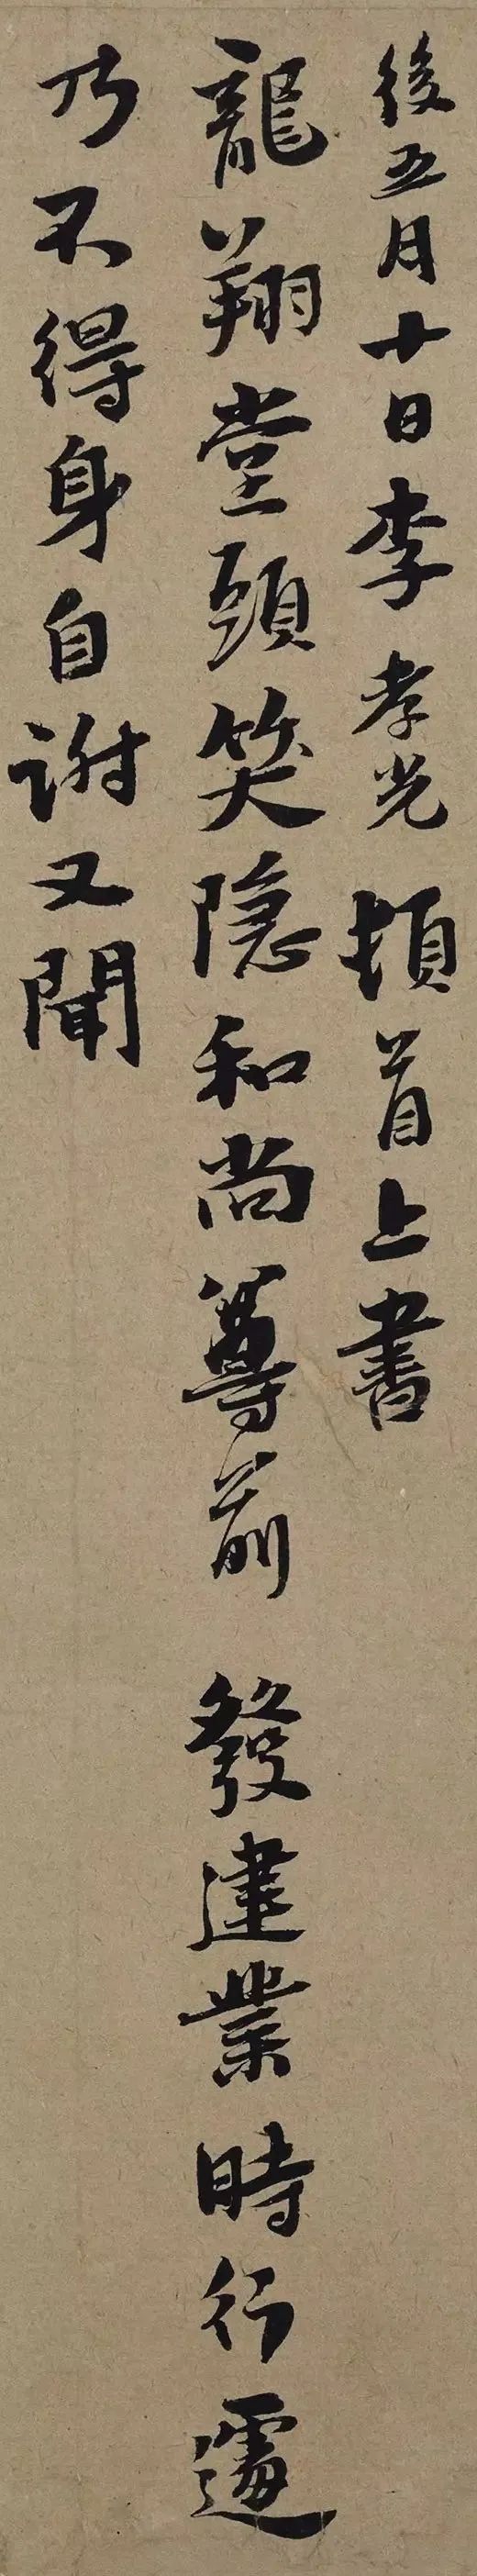 後五月十日李孝光頓首上書
龍翔堂頭笑隱和尚尊前發建業時行遽
乃不得身自謝又聞